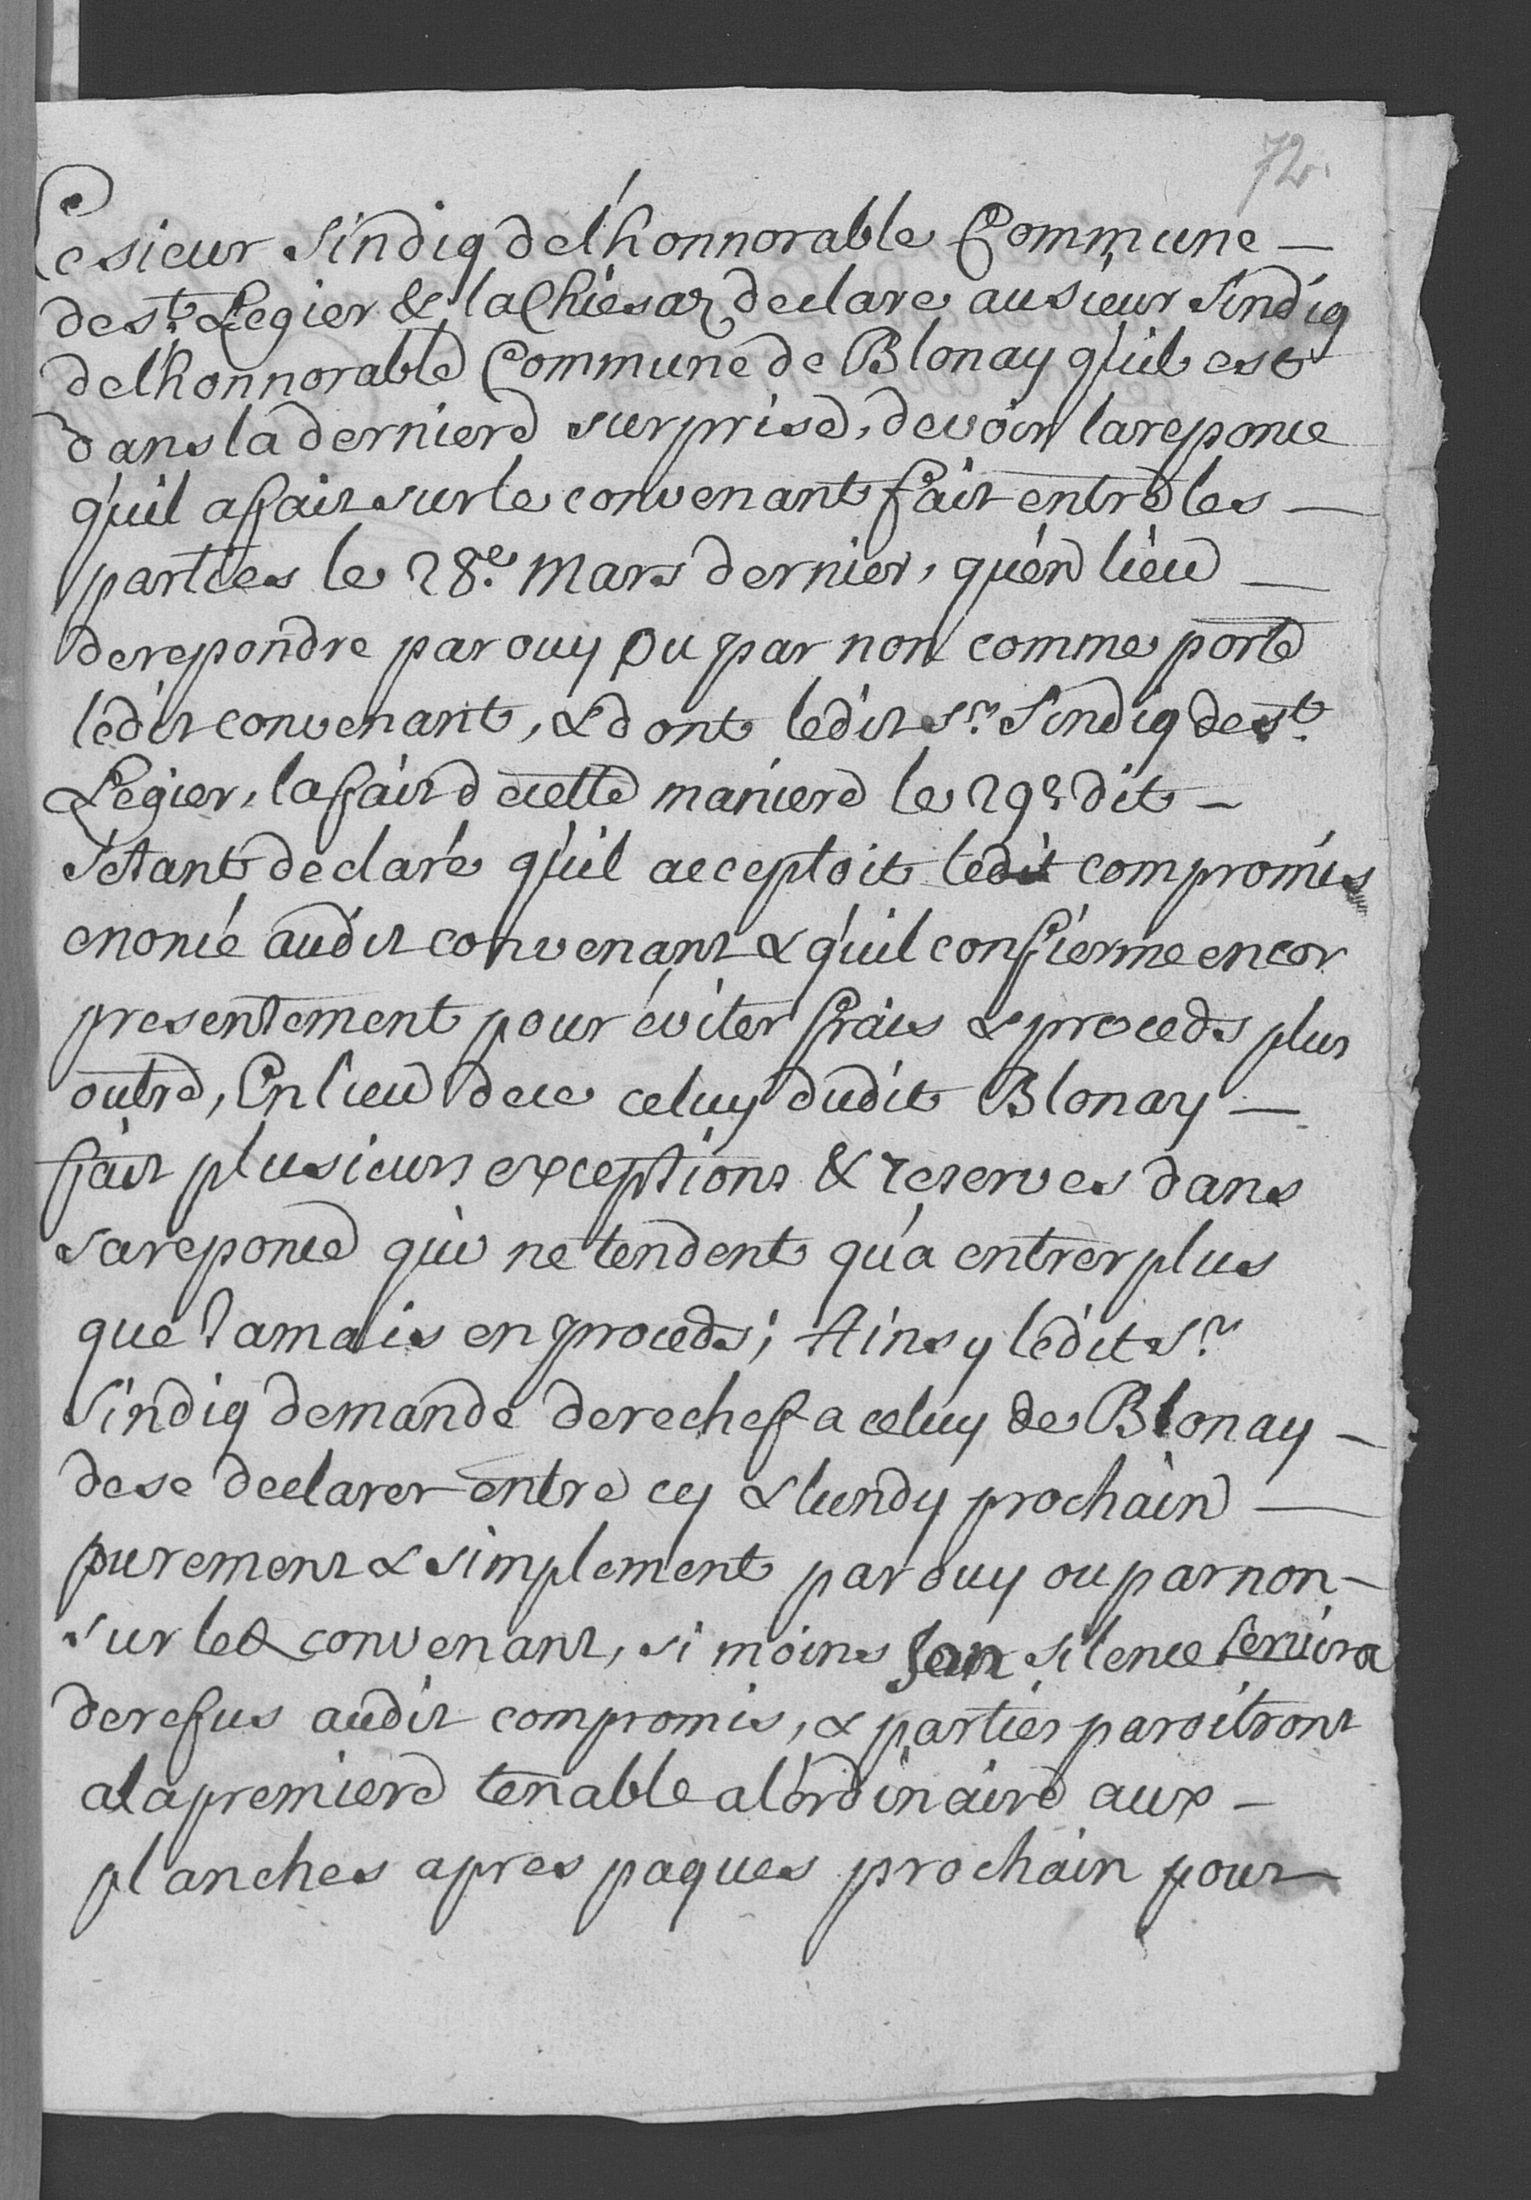 72.
Le sieur Sindiq de l'honnorable Commune —
de St. Legier & la Chiesaz declare au sieur Sindiq
de l'honnorable Commune de Blonay qu'il est
dans la derniere surprise, de voir la reponce
qu'il a fait sur le convenant fait entre les —
parties le 28e. Mars dernier, qu'en lieu —
de repondre par ouy ou par non comme porte
ledit convenant, & dont ledit Sr. Sindiq de St.
Legier, la fait de cette maniere le 29e dit —
s'etant declaré qu'il acceptoit ledit compromis
enoncé audit convenant & qu'il confierme encor
presentement pour éviter frais & proceds plus
outre, En lieu de ce celuy dudit Blonay —
fait plusieurs exceptions & reserves dans
sa reponce qui ne tendent qu'a entrer plus
que Jamais en proceds; Ainsy ledit Sr.
Sindiq demande derechef a celuy de Blonay —
de se declarer entre cy & lundy prochain —
purement & simplement par ouy ou par non —
sur le convenant, si moins son silence servira
de refus audit compromis, & parties paroitront
a la premiere tenable a l'ordinaire aux —
planches apres paques prochain pour